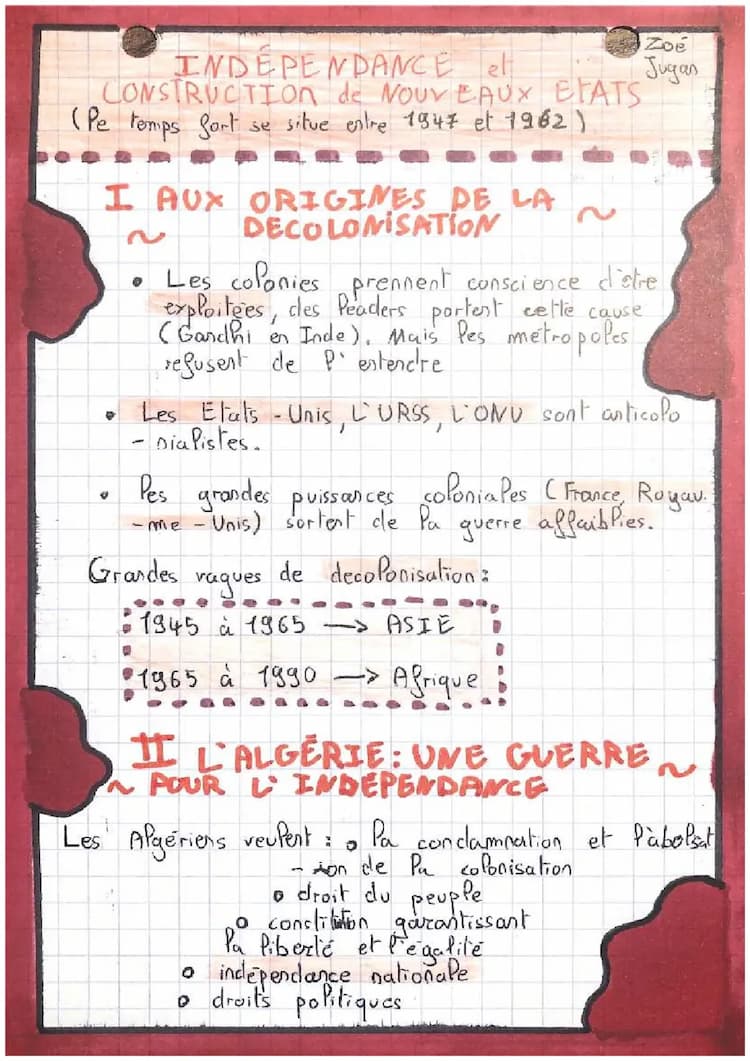 Zoé
Jugan
INDÉPENDANCE et
CONSTRUCTION de NOUVEAUX ETATS
(le temps fort se situe entre 1947 et 1962)
I AUX ORIGINES DE LA
~ DECOLONISATION ~
• Les colonies prennent conscience d'être
exploitées, des leaders portent cette cause
(Gandhi en Inde). Mais les métropoles
refusent de l'entendre
• Les Etats-Unis, L'URSS, L'ONU sont anticolo
-nialistes.
• les grandes puissances coloniales (France, Royau-
-me-Unis) sortent de la guerre affaiblies.
Grandes vagues de decolonisation :
1945 à 1965 → ASIE
1965 à 1990 → Afrique
II L'ALGÉRIE : UNE GUERRE
~ POUR L'INDÉPENDANCE ~
Les Algériens veulent : o la condamnation et l'àbolsat
-ion de la colonisation
o droit du peuple
o constitution garantissant
la liberté et l'égalité
o indépendance nationale
o droits politiques